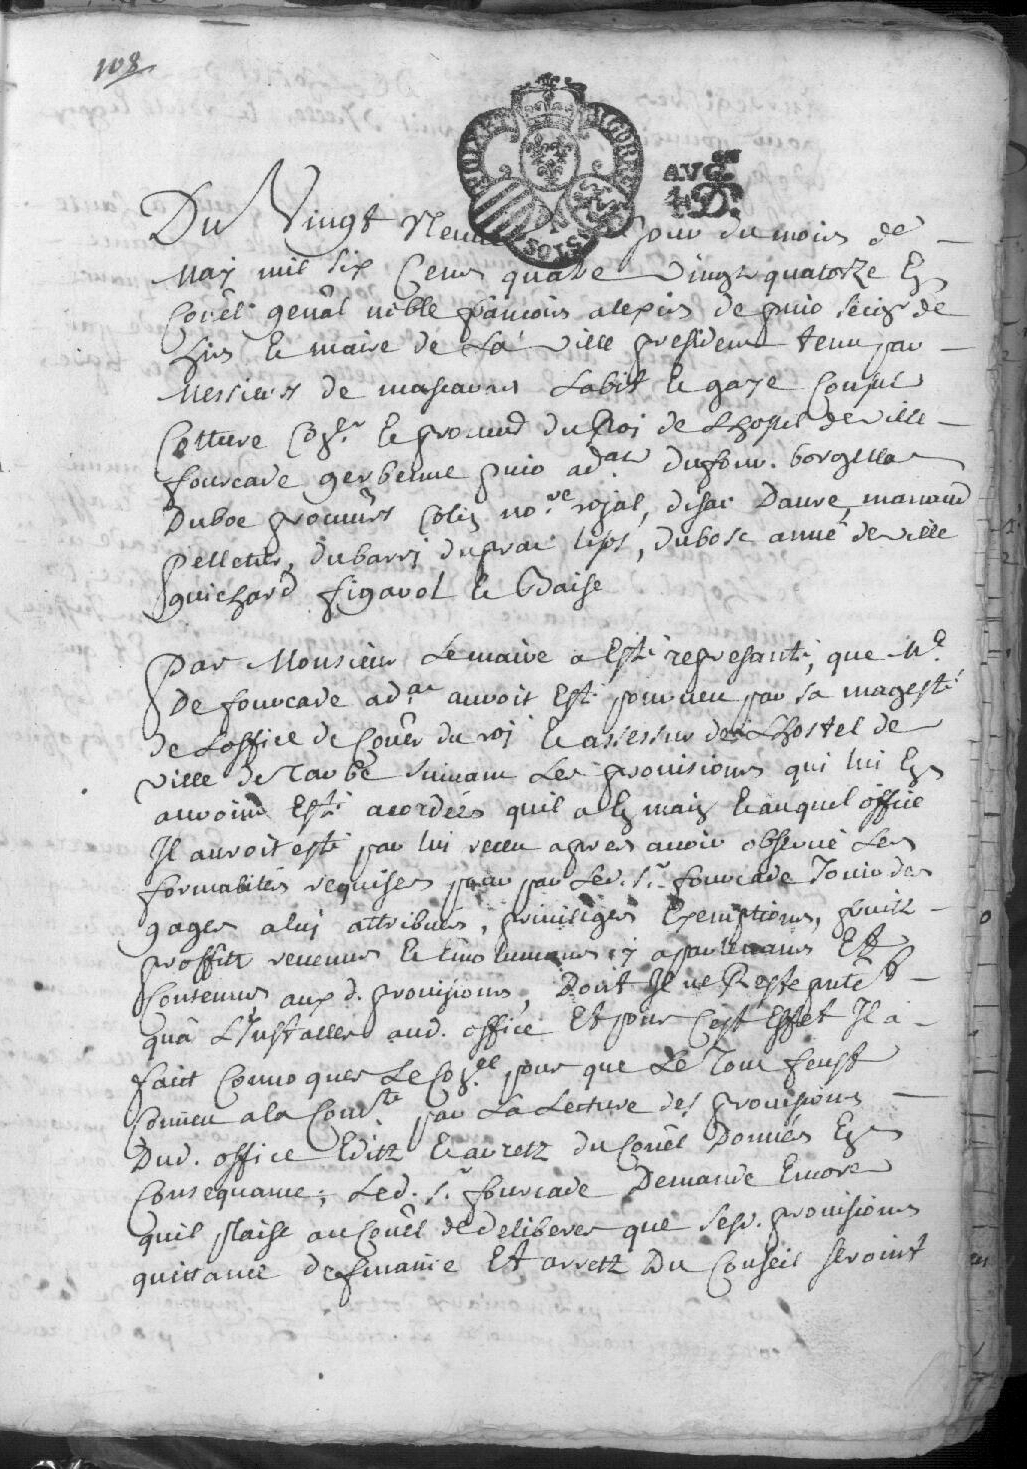 108
AVG.en
4 D.
SOLS
Du Vingt Neuf Jour du mois de
May mil six Cens quatre vingts quatorze En
Coñel genâl noble françois alexis de puio seigr de
le maire de La ville president tenu par
Messieurs de mascaras Labit le gaye
Cotture le procureur du Roi de Lhostel de ville
fourcade gerbenne puio ad.at dufour. borgella
Duboe procurs no.re rojal, Daure, manaud
Pelletier, dubarri duprat lips, dubosc année de ville
guichard figarol le Baise
Par Monsieur Lemaire a Esté represanté, que Mr.
De fourcade ad.at auroit Esté pourueu par sa magesté
de Loffice de Coñer du roj & assesseur de LHostel de
ville de Tarbe suiuant Les prouisions qui lui En
auroint Esté acordées quil a En main & auquel office
Il auroit esté par lui receu apres auoir obserué Les
formalités requises pour par Led. Sr. fourcade Jouir des
gages a luj attribués, priuileges Exemptions, fruitz
proffitz reuenus & Emolumens i apartenans Et
Contenus aux d. prouisions, Dont Il ne Reste
quâ LInstaller aud. office Et pour Cest Effet Il a
faict Conuoquer Le pour que Le Tout feust
Conneu a la Com.te par La Lecture des prouisions
Dud. office Editz & arretz du Coñel Donnés En
Consequance, Led. Sr. fourcade Demande Encore
quil plaise au Coñel de deliberer que sesd. prouisions
quittance de finance Et arretz Du Conseil seroint